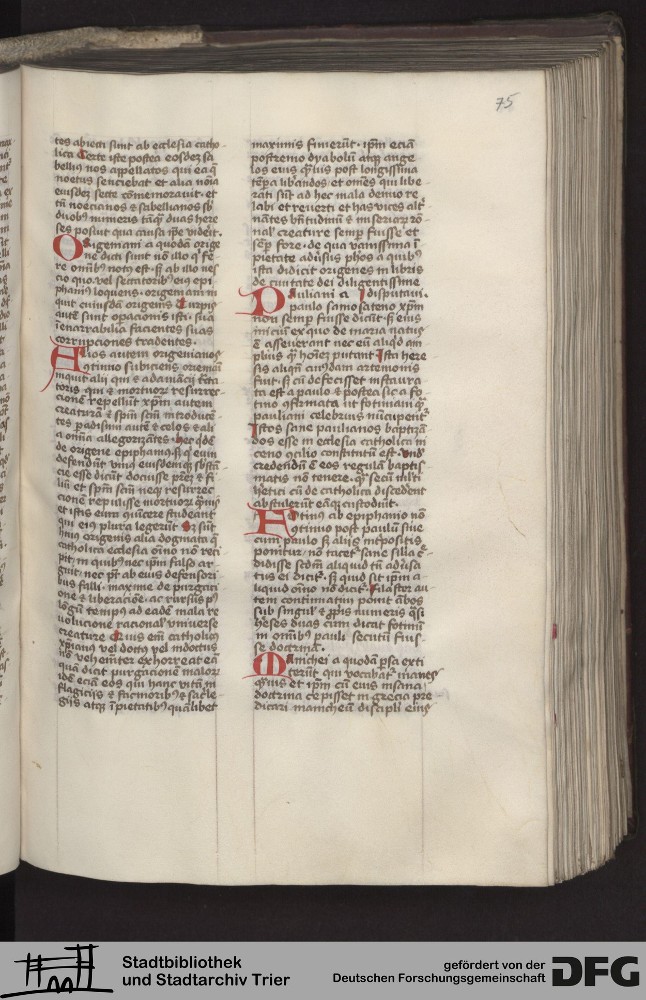 75
tos abiecti sunt ab ecclesia catho
lica Certe iste postea eosdem sa
bellius nos appellatos qui ea q
noetus senciebat et alia noia
eiusdem secte commemorauit et
tn noecianos & sabellianos sb
duobus numeris tamq duas here
ses posuit qua causa ipse viderit
Origeniani a quodam orige
ne dicti sunt no illo q fe
re omibus notus est sed ab illo nes
cio quo vel sectatoribus eius epi
phanius loquens origeniani in
quit cuiusdam origenis Turpis
aute sunt opacionis isti sua
inenarrabilia facientes suas
corrupciones tradentes
Alios autem origenianos
continuo subiciens origeniani
inquit alii qui & adamancii tracta
toris qui & mortuorum resurrec
cione repellunt xpm autem
creatura & spm scm introducen
tes padisum aute & celos & ali
a omnia allegorizantes hec qde
de origene epiphanius sed qui eum
defendunt vnius eiusdemque substan
cie esse dicunt docuisse prem & fi
lium et spm scm neque resurrec
cione repulisse mortuorum quis
et istis eum conuincere studeant
qui eius plura legerunt Sed sunt
huius origenis alia dogmata que
catholica ecclesia oino no reci
pit in quibus nec ipm falso ar
guit nec pt ab eius defensori
bus falli maxime de purgaci
one & liberacione ac rursus post
longum tempus ad eade mala re
uolucione racional vniuerse
creature Quis enim catholicus
xpianus vel doctus vel indoctus
no vehementer exhorreat ea
qua dicit purgacionem malorum
ide eciam eos qui hanc vitam in
flagiciis & facinoribus & sacrile
giis atque impietatibus quamlibet
maximis finierunt ipm eciam
postremo dyabolum atque ange
los eius quis post longissima
tpa libandos et omes qui libe
rati sunt ad hec mala denuo re
labi et reuerti et has vices alt
nates beatitudinum & miseriarum ro
nal creature semp fuisse et
semp fore de qua vanissima i
pietate adusus phos a quibus
ista didicit origenes in libris
de ciuitate dei diligentissime
Pauliani a disputaui
paulo samosateno xpm
non semp fuisse dicunt sed eius
inicium ex quo de maria natus
est asseuerant nec eum aliquid am
plius q hominem putant Ista here
sis aliqn cuiusdam artemonis
fuit sed cum defecisset instaura
ta est a paulo & postea sic a fo
tino confirmata ut fotiniani quam
pauliani celebrius nuncupentur
Istos sane paulianos baptizan
dos esse in ecclesia catholica ni
ceno consilio constitutum est vnde
credendum est eos regula baptis
matis no tenere quam secum multi
heretici cum de catholica discederent
abstulerunt eamque custodiunt
Fotinus ab epiphanio no
continuo post paulum siue
cum paulo sed aliis interpositis
ponitur no tacet sane filla cre
didisse scdm aliquid tn aduersa
tus ei dicitur sed quid sit ipm a
liquid omnino no dicit Filaster au
tem continuatim ponit ambos
sub singulis & propriis numeris quasi
heses duas cum dicat fotinum
in omibus pauli secutum fuis
se doctrinam
Manichei a quodam persa exti
terunt qui vocabatur manes
quis et ipm cum eius insana
doctrina cepisset in grecia pre
dicari manicheum discipuli eius
Stadtbibliothek
und Stadtarchiv Trier
gefördert von der
Deutschen Forschungsgemeinschaft
DFG